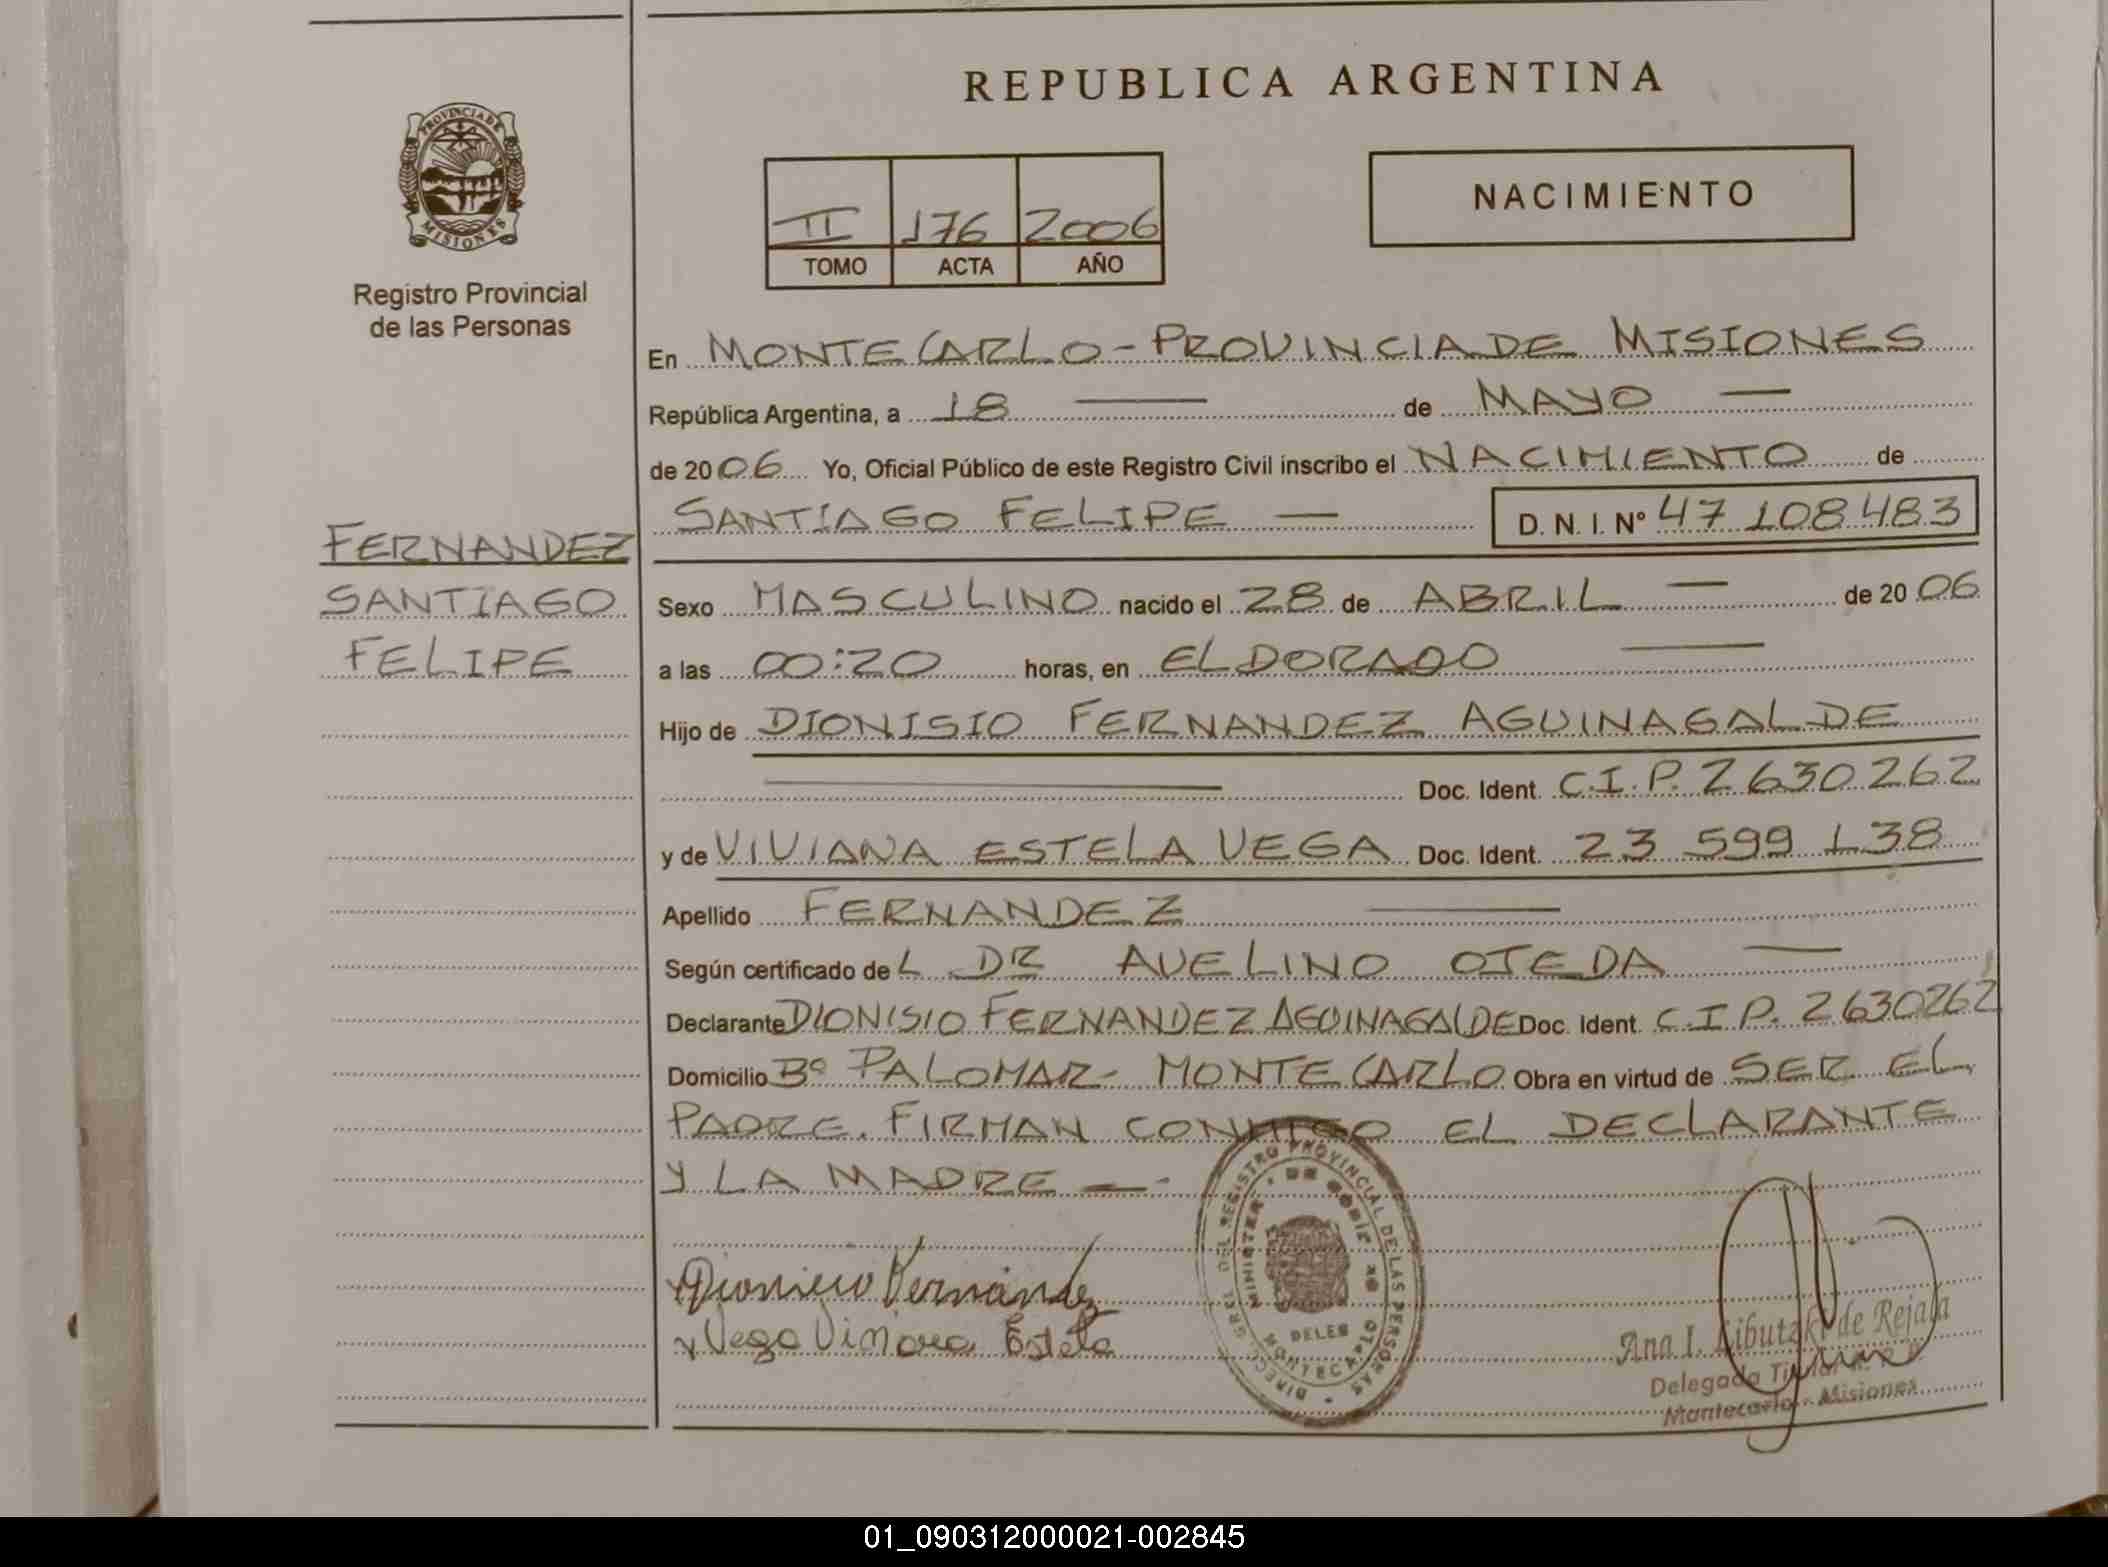 REPUBLICA ARGENTINA
PROVINCIA DE
MISIONES
Registro Provincial
de las Personas
II 176 2006
TOMO ACTA AÑO
NACIMIENTO
En MONTECARLO - PROVINCIA DE MISIONES
República Argentina, a 18 — de MAYO —
de 2006 Yo, Oficial Público de este Registro Civil inscribo el NACIMIENTO de
SANTIAGO FELIPE — D. N. I. Nº 47 108 483
FERNANDEZ
SANTIAGO
FELIPE
Sexo MASCULINO nacido el 28 de ABRIL — de 2006
a las 00:20 horas, en ELDORADO —
Hijo de DIONISIO FERNANDEZ AGUINAGALDE
— Doc. Ident. C.I.P. 2630262
y de VIVIANA ESTELA VEGA Doc. Ident. 23 599 138
Apellido FERNANDEZ —
Según certificado de L DR AVELINO OJEDA —
Declarante DIONISIO FERNANDEZ AGUINAGALDE Doc. Ident. C.I.P. 2630262
Domicilio Bº PALOMAR - MONTECARLO Obra en virtud de SER EL
PADRE. FIRMAN CONMIGO EL DECLARANTE
Y LA MADRE —
x Dionisio Fernández
x Vega Viviana Estela
DIRECC. GRAL. DEL REGISTRO PROVINCIAL DE LAS PERSONAS
MONTECARLO
Ana I. de Rejala
Delegada Titular
Montecarlo - Misiones
01_090312000021-002845